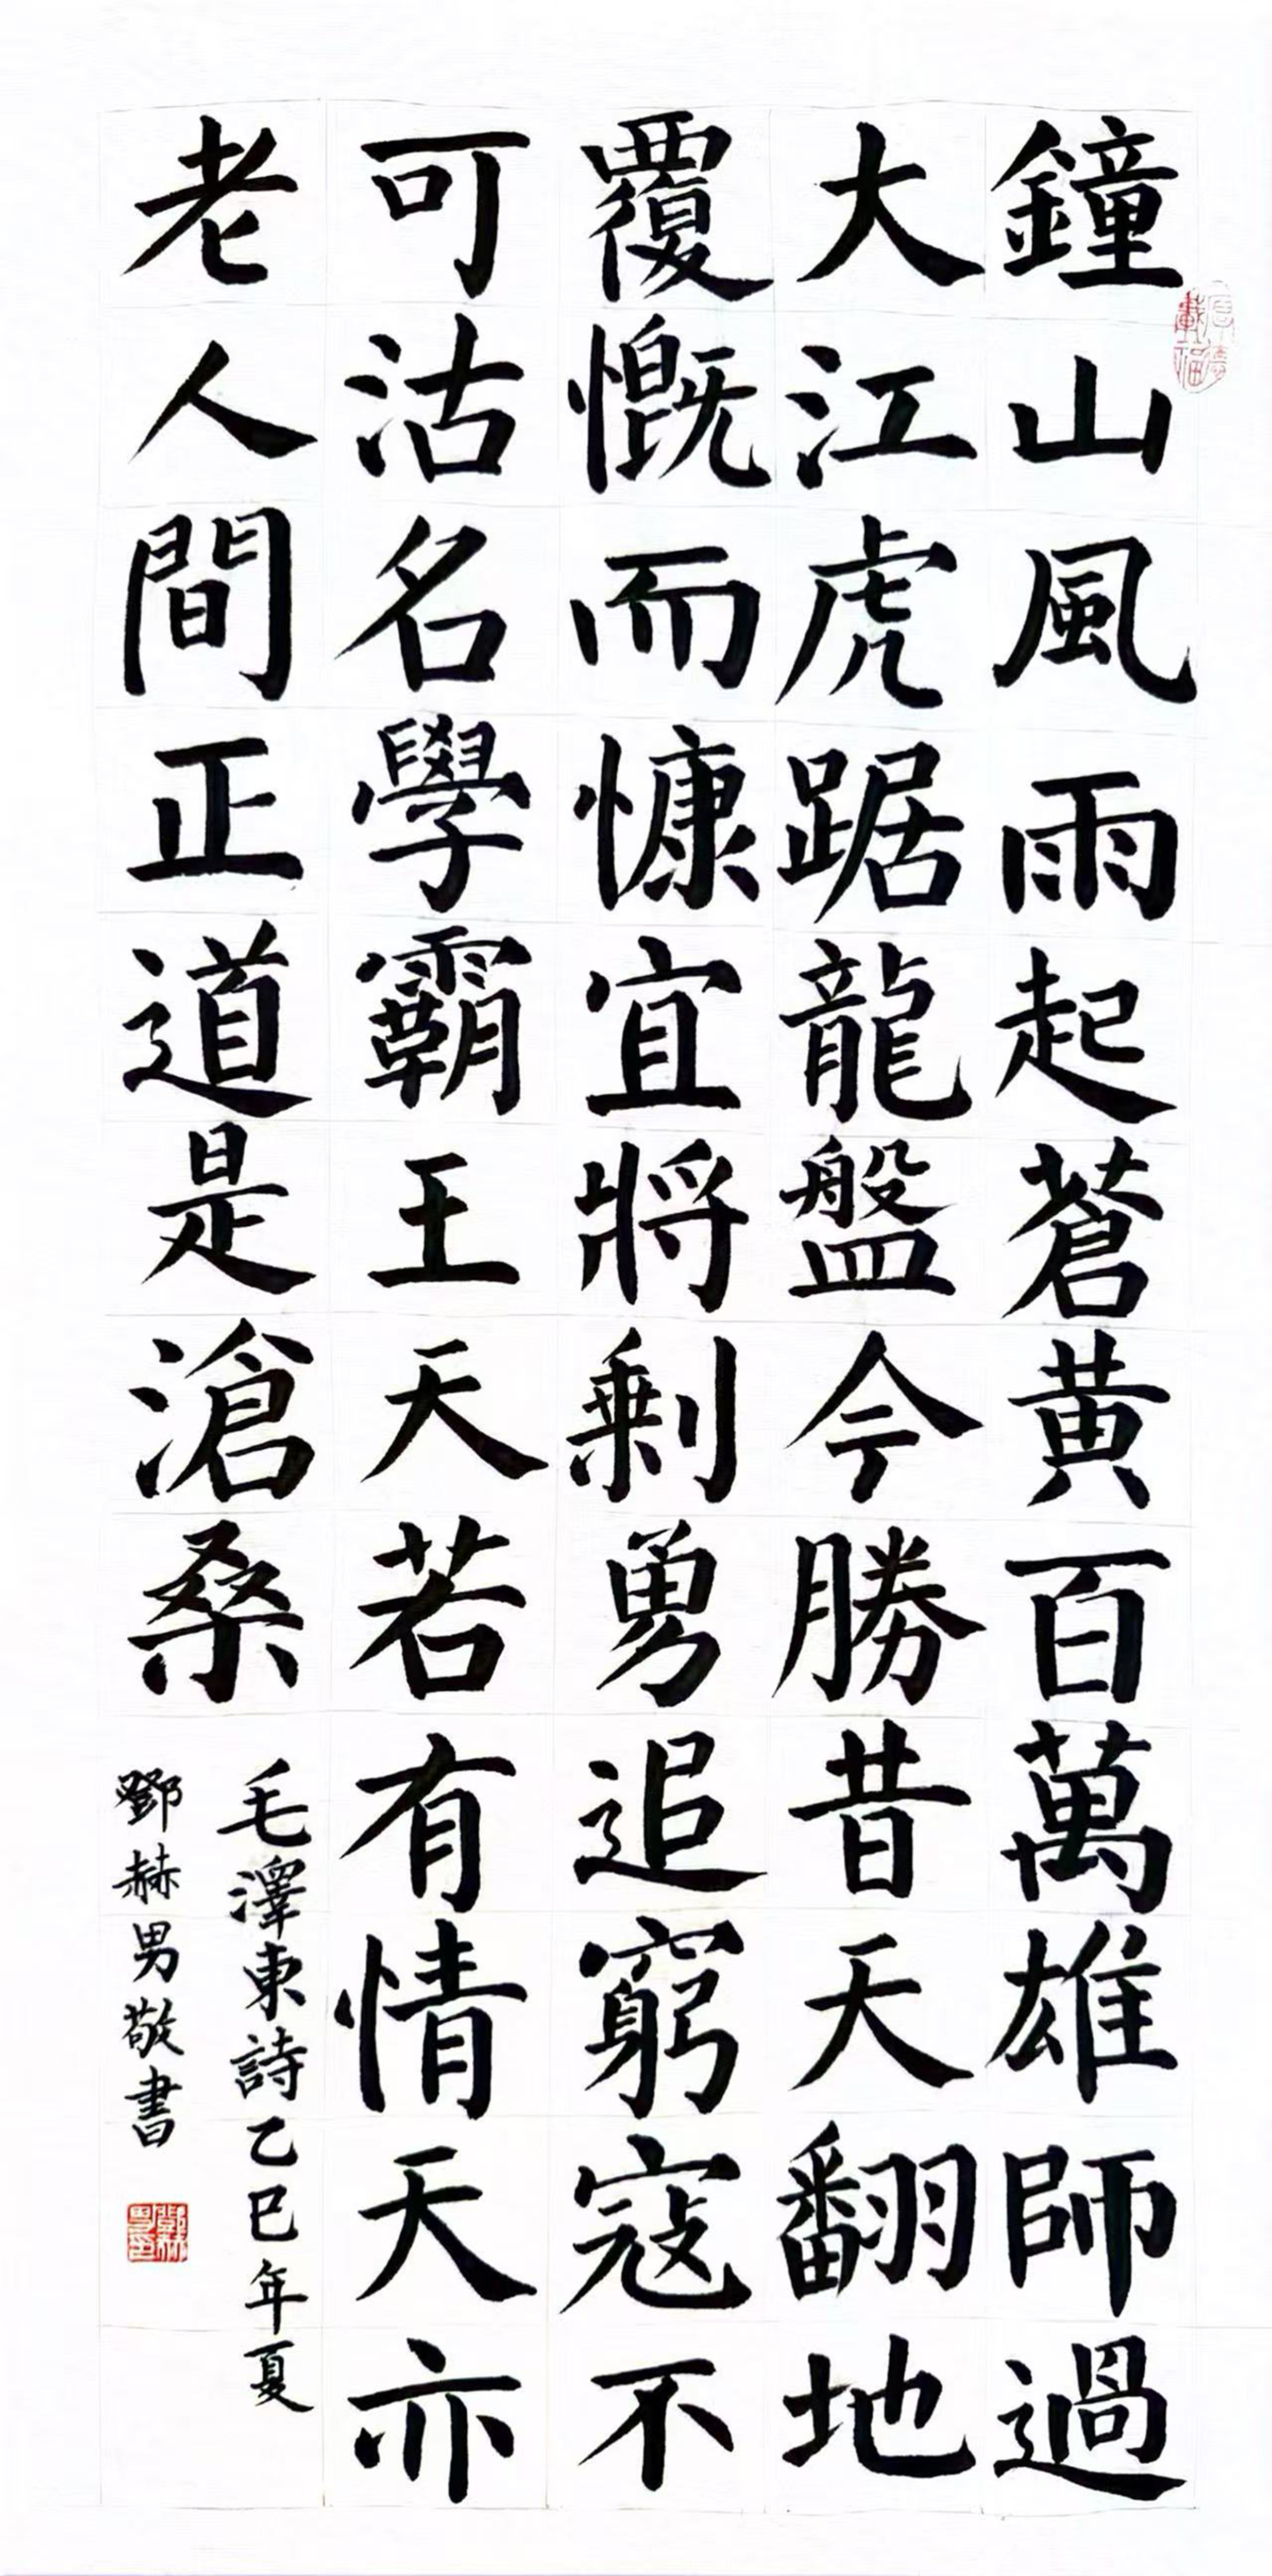 鐘山風雨起蒼黃百萬雄師過
大江虎踞龍盤今勝昔天翻地
覆慨而慷宜將剩勇追窮寇不
可沽名學霸王天若有情天亦
老人間正道是滄桑
毛澤東詩乙巳年夏
鄧赫男敬書
厚德載福